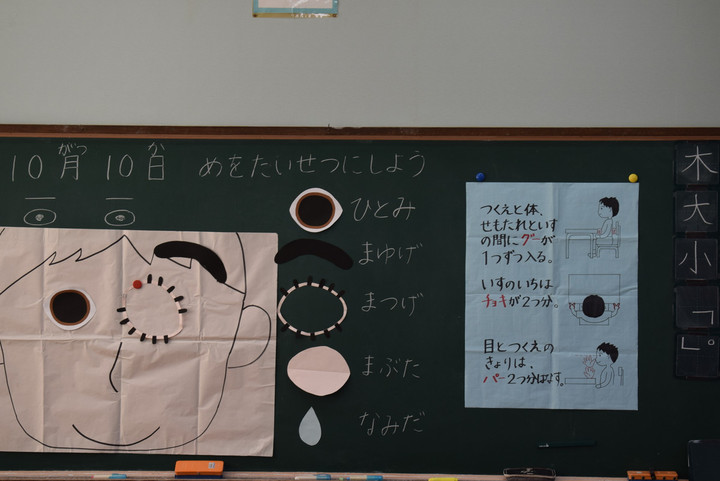 がつ か
10月 10日 めをたいせつにしよう
ひとみ
まゆげ
まつげ
まぶた
なみだ
つくえと体、
せもたれといす
の間にグーが
1つずつ入る。
いすのいちは
チョキが2つ分。
目とつくえの
きょりは、
パー2つ分はなす。
木
大
小
「
」。